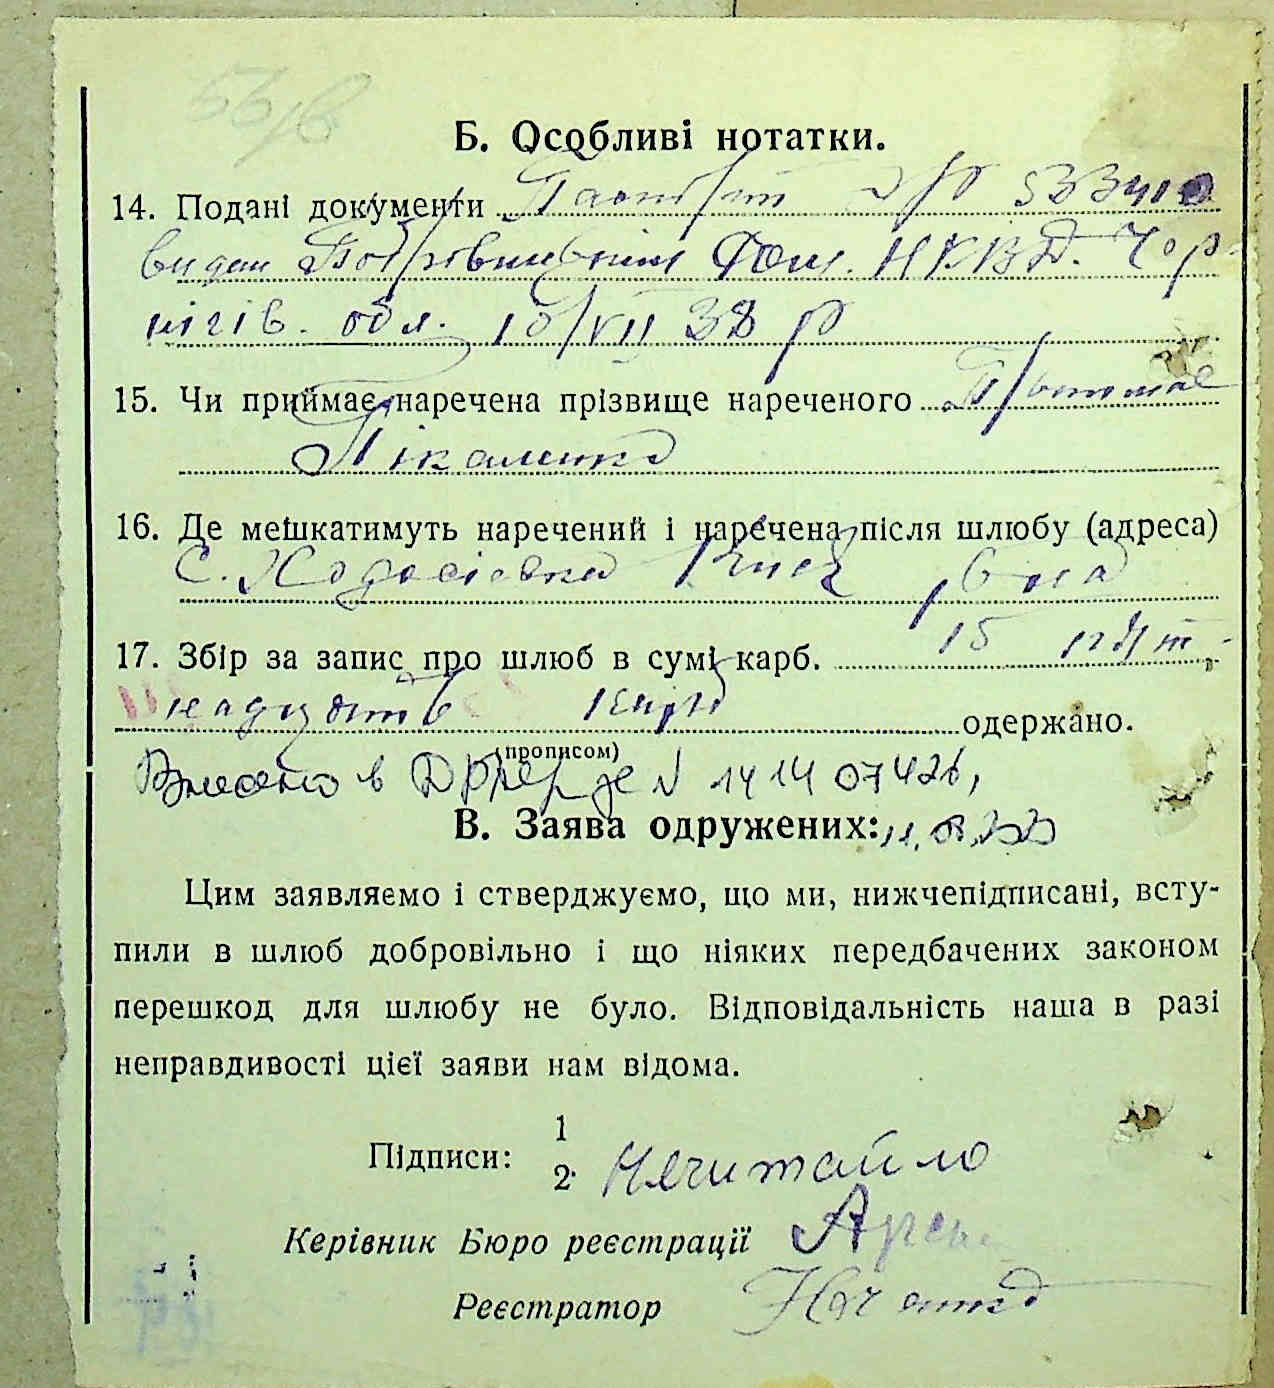 Б. Особливі нотатки.
14. Подані документи Паспорт
видан НКВД. Чер-
нігів. обл. 10/VII 38 р
15. Чи приймає наречена прізвище нареченого
Пікаленко
16. Де мешкатимуть наречений і наречена після шлюбу (адреса)
С. Ходосівка Київ
17. Збір за запис про шлюб в сумі карб. 15 п'ят-
надцять карб одержано.
(прописом)
Внесено в N 1414 07426,
В. Заява одружених:
Цим заявляємо і стверджуємо, що ми, нижчепідписані, всту-
пили в шлюб добровільно і що ніяких передбачених законом
перешкод для шлюбу не було. Відповідальність наша в разі
неправдивості цієї заяви нам відома.
Підписи: 1
2. Нечитайло
Керівник Бюро реєстрації
Реєстратор